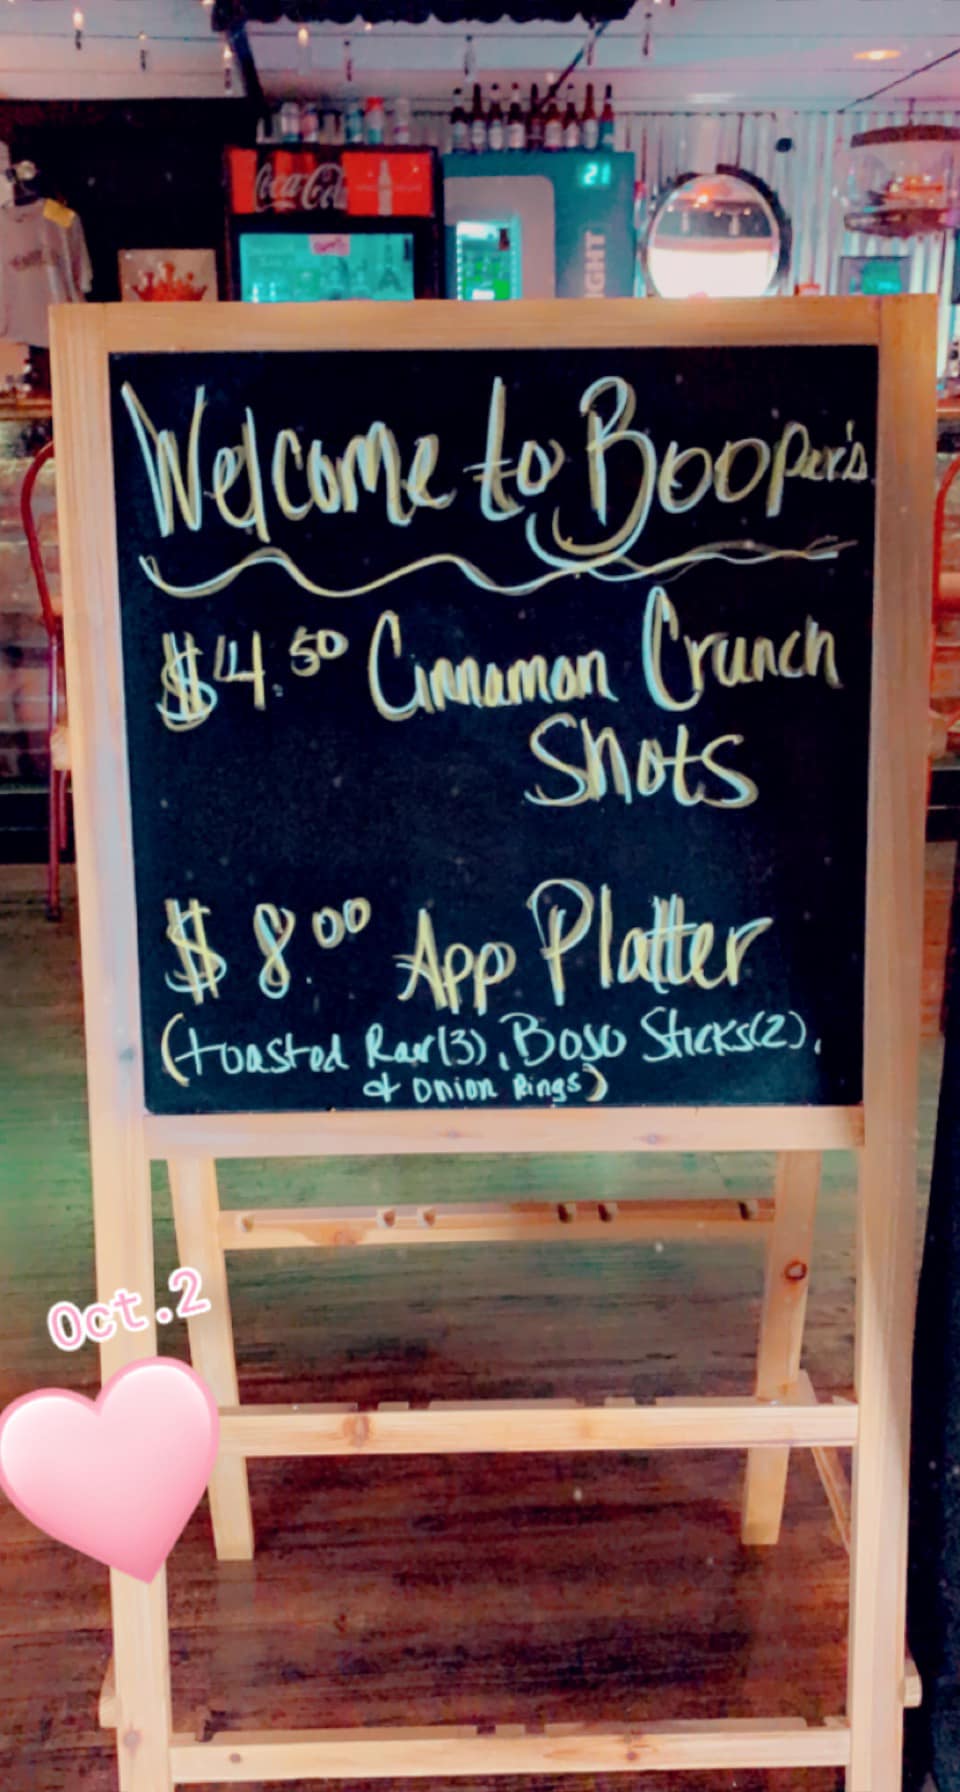 Coca-Cola
21
IGHT
Welcome to Booper's
$4.50 Cinnamon Crunch
Shots
$8.00 App Platter
(toasted Rav(3), Bosco Sticks(2),
& Onion Rings)
Oct.2